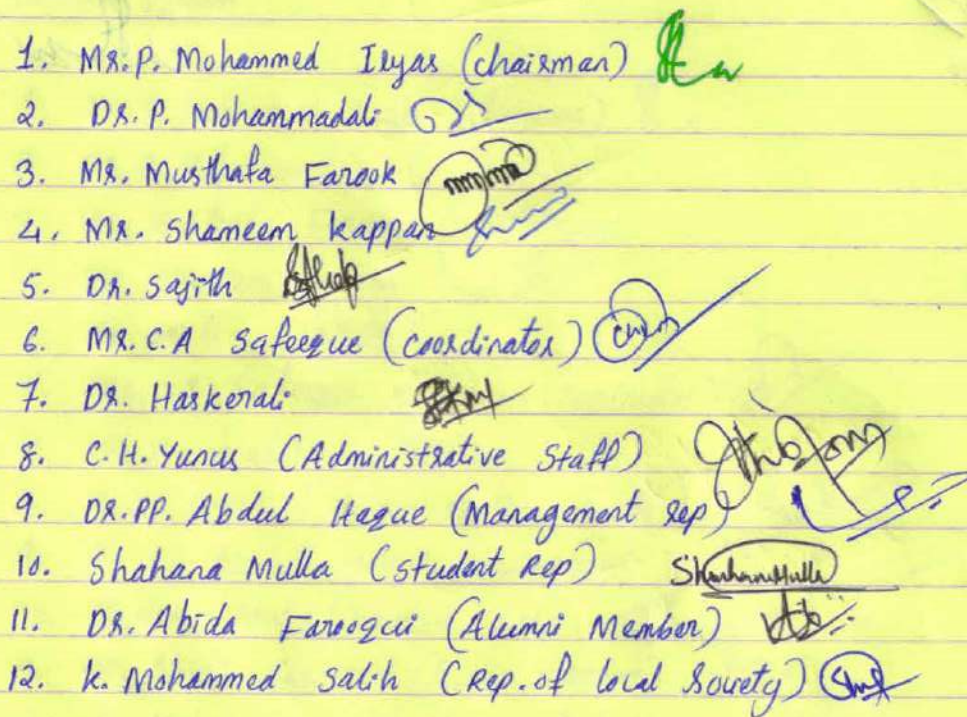 1. Mr. P. Mohammed Ilyas (chairman)
2. Dr. P. Mohammadali
3. Mr. Musthafa Farook
4. Mr. Shameem kappan
5. Dr. Sajith
6. Mr. C.A Safeeque (coordinator)
7. Dr. Haskerali
8. C.H. Yunus (Administrative Staff)
9. Dr. PP. Abdul Haque (Management rep)
10. Shahana Mulla (Student Rep) ShahanaMulla
11. Dr. Abida Farooqui (Alumni Member)
12. K. Mohammed Salih (Rep. of local Society)